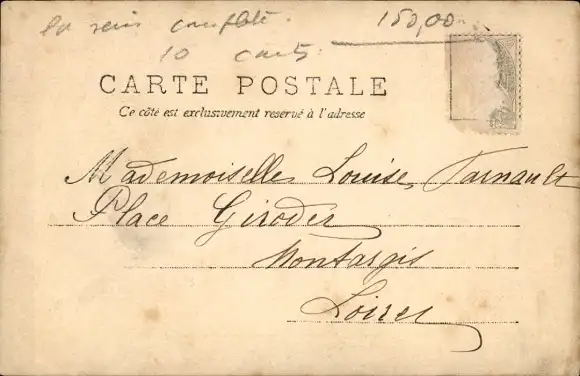 la série complète.
150,00
10 cart
CARTE POSTALE
Ce côté est exclusivement reservé à l'adresse
Mademoiselle Louise Farnault
Place Girodet
Montargis
Loiret